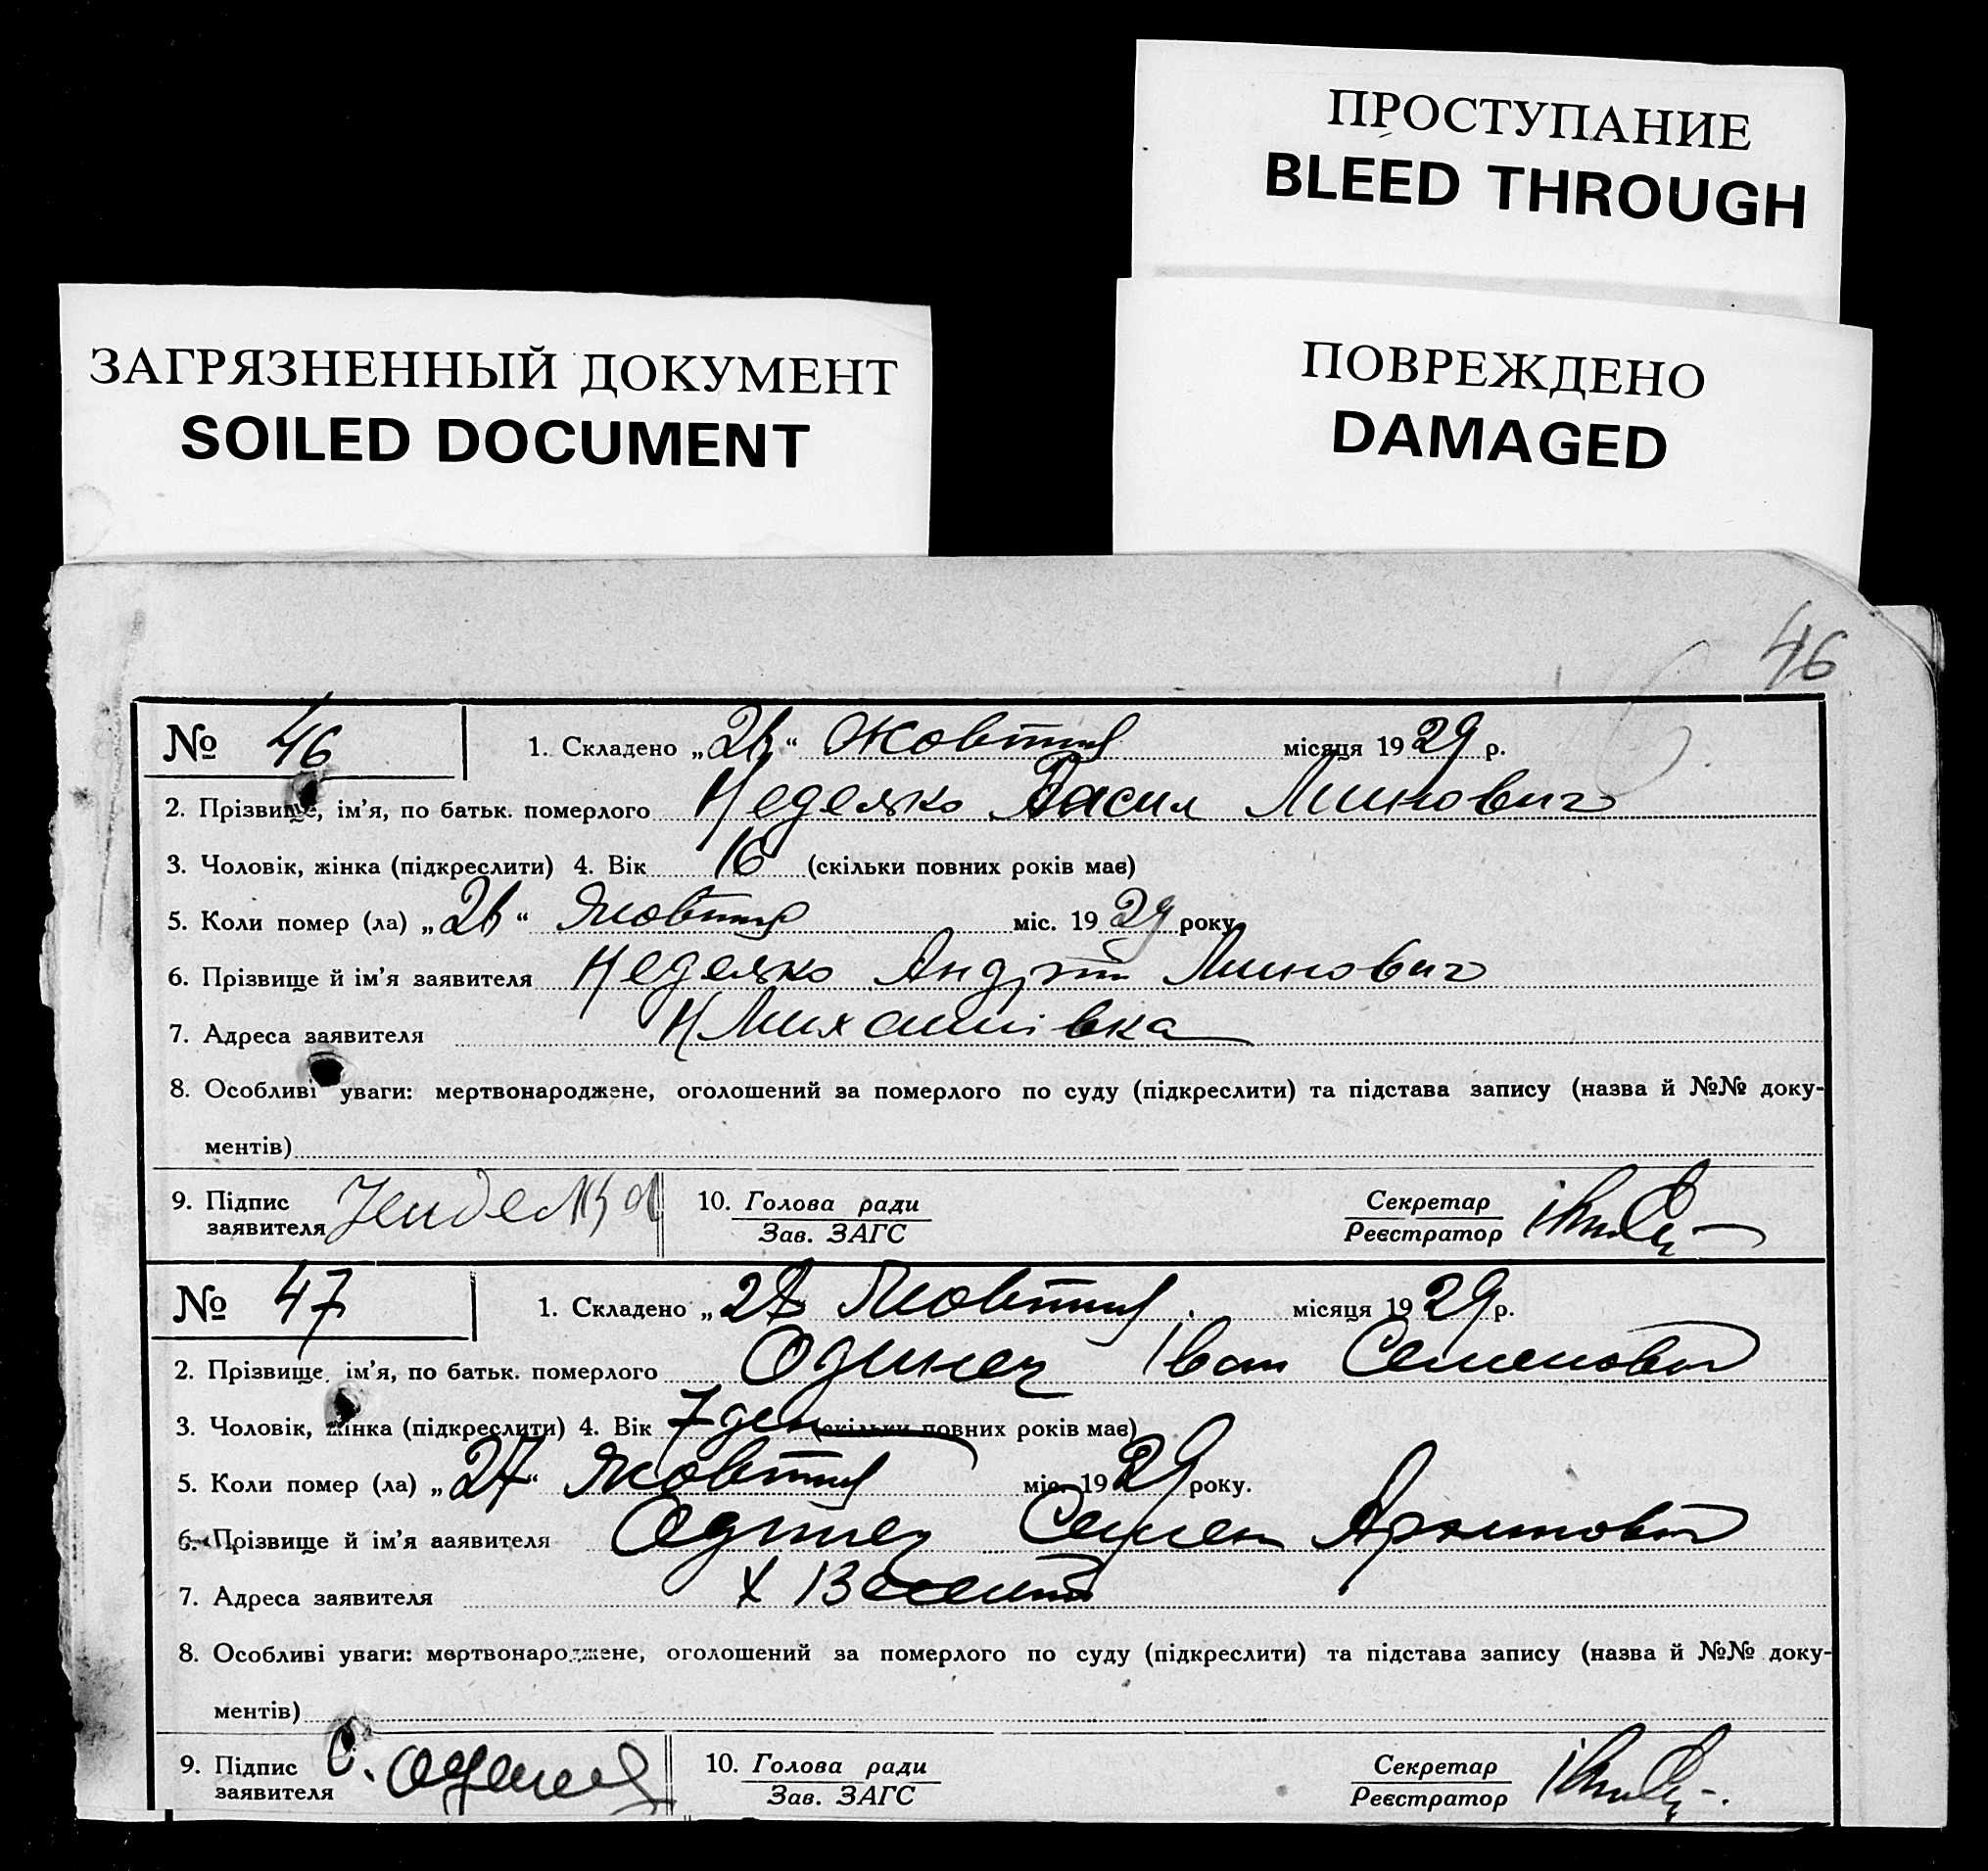 ПРОСТУПАНИЕ
BLEED THROUGH
ЗАГРЯЗНЕННЫЙ ДОКУМЕНТ
SOILED DOCUMENT
ПОВРЕЖДЕНО
DAMAGED
46
№ 46 1. Складено „26“ Жовтня місяця 1929 р.
2. Прізвище, ім'я, по батьк. померлого Неделько Васил Минович
3. Чоловік, жінка (підкреслити) 4. Вік 16 (скільки повних років має)
5. Коли помер (ла) „26“ Жовтня міс. 1929 року
6. Прізвище й ім'я заявителя Неделько Андрій Минович
7. Адреса заявителя Н Михайлівка
8. Особливі уваги: мертвонароджене, оголошений за померлого по суду (підкреслити) та підстава запису (назва й №№ доку-
ментів)
9. Підпис заявителя 10. Голова ради Зав. ЗАГС Секретар Реєстратор
№ 47 1. Складено „28 Жовтня місяця 1929 р.
2. Прізвище, ім'я, по батьк. померлого Одинец Іван Семенович
3. Чоловік, жінка (підкреслити) 4. Вік 7 ден (скільки повних років має)
5. Коли помер (ла) „27“ Жовтня міс. 1929 року.
6. Прізвище й ім'я заявителя Одинец Семен
7. Адреса заявителя Х Веселий
8. Особливі уваги: мертвонароджене, оголошений за померлого по суду (підкреслити) та підстава запису (назва й №№ доку-
ментів)
9. Підпис заявителя С. Одинец 10. Голова ради Зав. ЗАГС Секретар Реєстратор